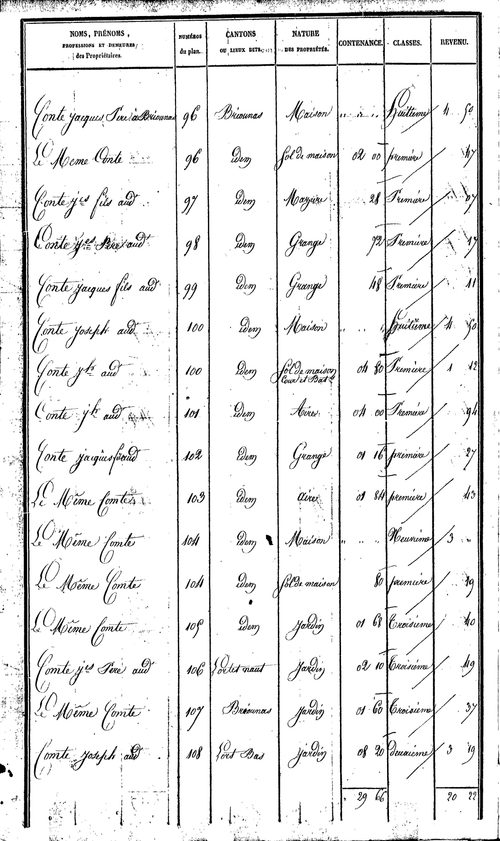 NOMS, PRÉNOMS, PROFESSIONS ET DEMEURES des Propriétaires. NUMÉROS du plan. CANTONS OU LIEUX DITS. NATURE DES PROPRIÉTÉS. CONTENANCE. CLASSES. REVENU.
Conte Jacques Père à Briounas 96 Briounas Maison " " " huitieme 4 50
Le Meme Conte 96 idem Sol de maison 02 00 premiere 47
Conte Jes fils aud 97 idem Mazure 28 Premiere 07
Conte Jes Pere aud 98 idem Grange 72 Premiere 17
Conte Jacques fils aud 99 idem Grange 48 Premiere 11
Conte Joseph aud 100 idem Maison " " huitième 4 50
Conte Jh aud 100 idem Sol de maison Cour et 04 80 Premiere 1 12
Conte Jh aud 101 idem Aire 04 00 Premiere 94
Conte Jacques aud 102 idem Grange 01 16 premiere 27
Le Même Comte 103 idem aire 01 84 premiere 43
Le Même Comte 104 idem Maison " " Neuvieme 3 "
Le Même Comte 104 idem Sol de maison 80 premiere 19
Le Même Comte 105 idem Jardin 01 68 Troisieme 40
Comte Jes Père aud 106 Jardin 02 10 Troisième 49
Le Même Comte 107 Briounas Jardin 01 60 Troisieme 37
Comte Joseph aud 108 Bas Jardin 08 20 deuxieme 3 19
29 66 20 22